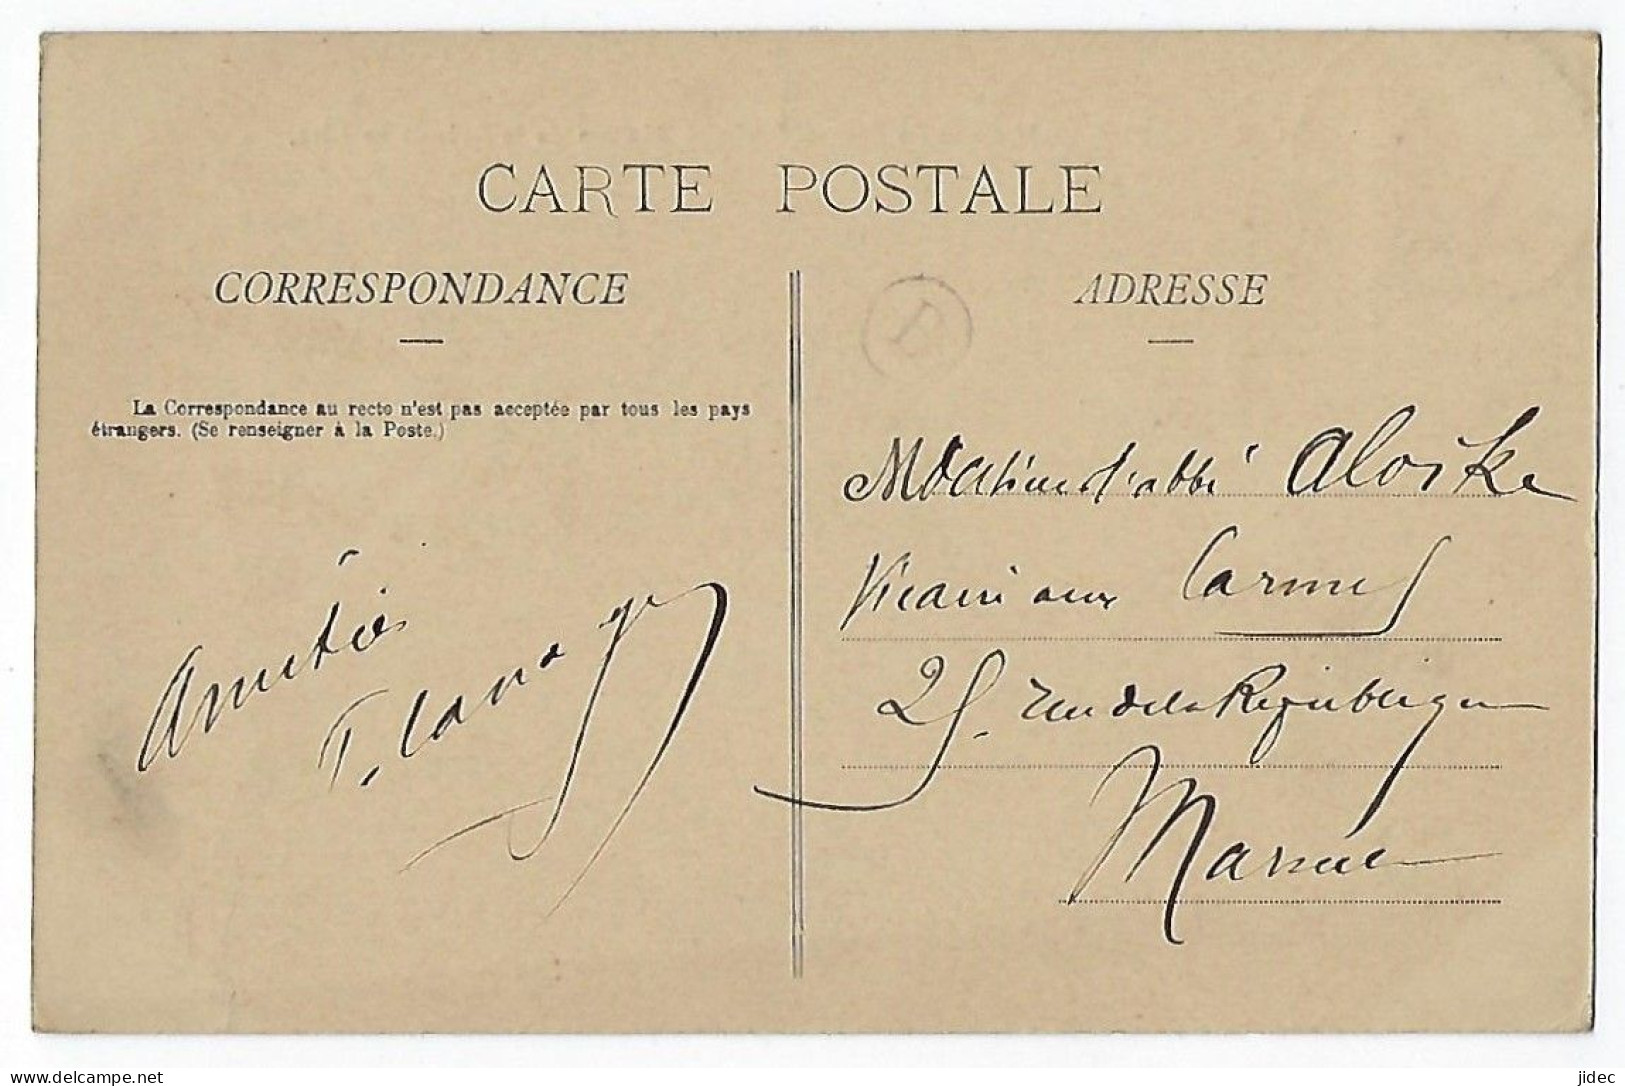 CARTE POSTALE
CORRESPONDANCE
ADRESSE
B
La Correspondance au recto n'est pas acceptée par tous les pays
étrangers. (Se renseigner à la Poste.)
Amitiés
l'abbé Aloïke
Vicaire aux Carmes
25, rue de la République
Mar
Delcampe.net
jidec